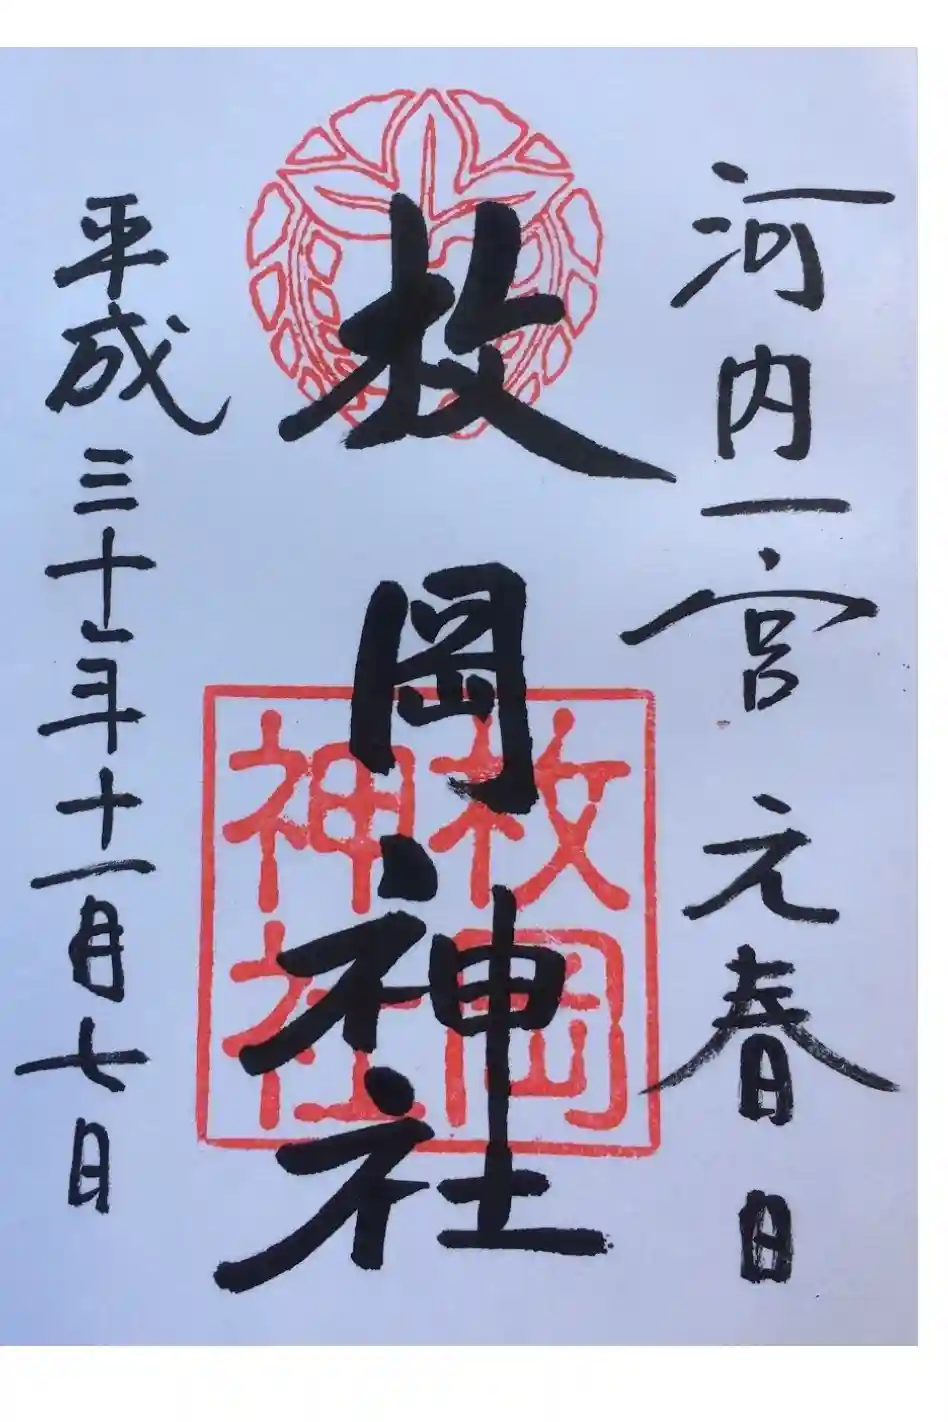 河内一宮 元春日
枚岡神社
枚岡
神社
平成三十年十一月七日